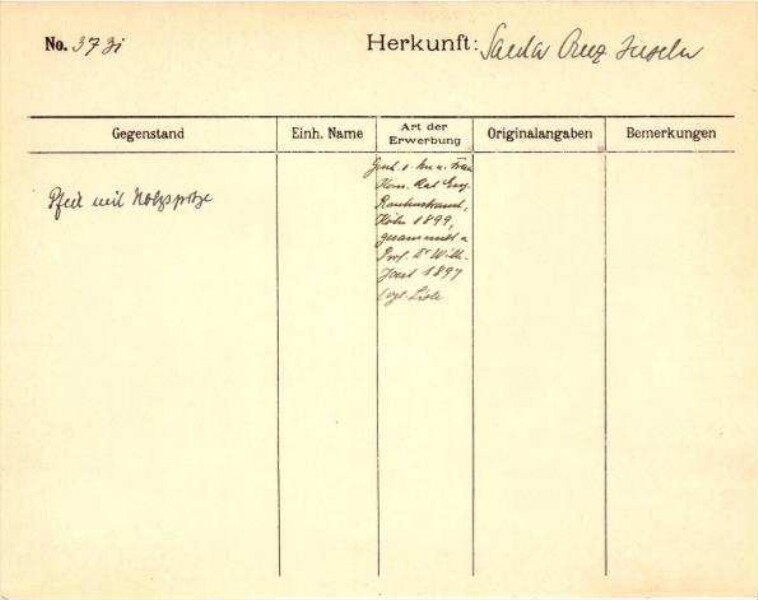 No. 37 zi
Herkunft: Santa Cruz Inseln
Gegenstand
Einh. Name
Art der
Erwerbung
Originalangaben
Bemerkungen
Pfeil mit Holzspitze
Gesch. v. Hrn u. Frau
Kom. Rat Eug.
Rautenstrauch,
Köln 1899,
gesammelt v.
Prof. Dr Wilh.
Joest 1897
vgl. Liste